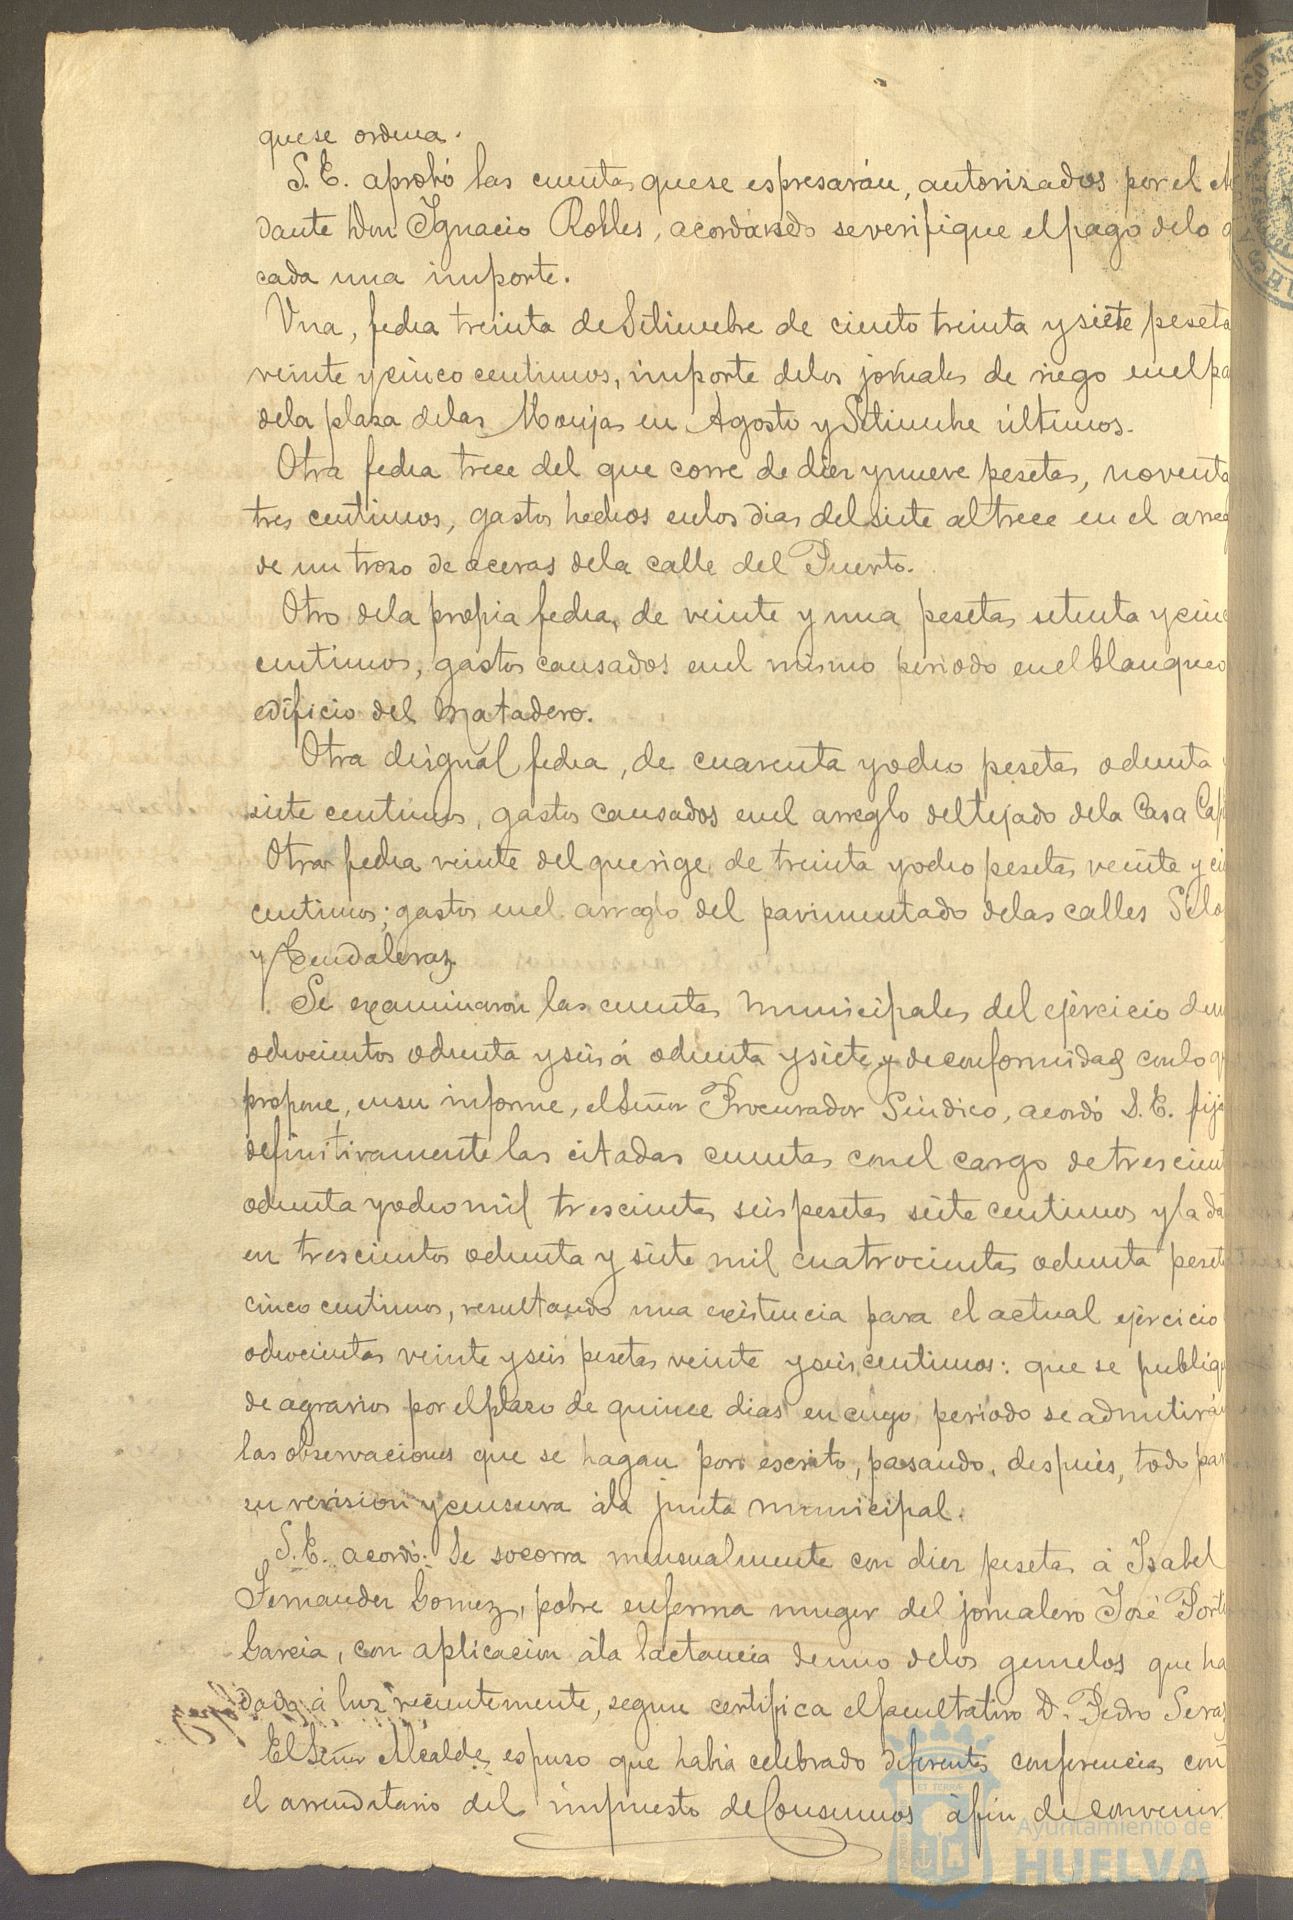 que se ordena.
S. E. aprobó las cuentas que se espresarán, autorizados por el
dante Don Ignacio Robles, acordando se verifique el pago de lo
cada una importe.
Una, fecha treinta de Setiembre de ciento treinta y siete peseta
veinte y cinco centimos, importe de los jornales de riego en el pa
de la plaza de las Monjas en Agosto y Setiembre últimos.
Otra fecha trece del que corre de diez y nueve pesetas, noventa
tres centimos, gastos hechos en los dias del siete al trece en el arreg
de un trozo de aceras de la calle del Puerto.
Otro de la propia fecha, de veinte y una pesetas setenta y cinc
centimos, gastos causados en el mismo periodo en el blanqueo
edificio del Matadero.
Otra de igual fecha, de cuarenta y ocho pesetas ochenta y
siete centimos, gastos causados en el arreglo del tejado de la Casa Capi
Otra fecha veinte del que rige, de treinta y ocho pesetas veinte y ci
centimos; gastos en el arreglo del pavimentado de las calles Silo
y Bendaleraz.
Se examinaron las cuentas municipales del ejercicio de
ochocientos ochenta y seis á ochenta y siete y de conformidad con lo q
propone, en su informe, el Señor Procurador Sindico, acordó S. E. fij
definitivamente las citadas cuentas con el cargo de trescient
ochenta y ocho mil trescientas seis pesetas siete centimos y la da
en trescientos ochenta y siete mil cuatrocientas ochenta peset
cinco centimos, resultando una existencia para el actual ejercicio
ochocientas veinte y seis pesetas veinte y seis centimos: que se publiq
de agravios por el plazo de quince dias en cuyo periodo se admitirán
las observaciones que se hagan por escrito, pasando, después, todo par
su revision y censura á la junta municipal.
S. E. acordó: Se socorra mensualmente con diez pesetas á Isabel
Fernandez Gomez, pobre enferma muger del jornalero José Port
Garcia, con aplicacion á la lactancia de uno de los gemelos que ha
dado á luz recientemente, segun certifica el facultativo D. Pedro Seraz
El Señor Alcalde, espuso que habia celebrado diferentes conferencias con
el arrendatario del impuesto de Consumos á fin de convenir
Ayuntamiento de
HUELVA